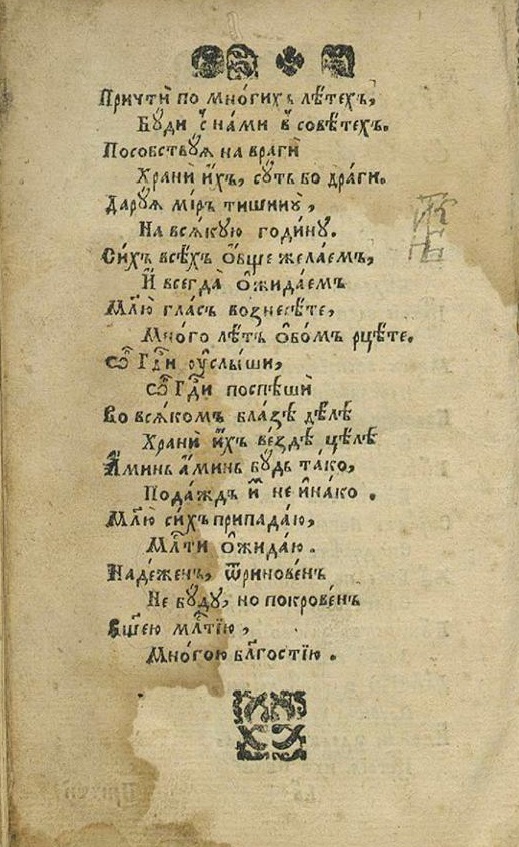 Причти́ по мно́гихъ лѣ́техъ,
Бꙋ́ди с̾ на́ми в̾ совѣ́техъ.
Посо́бствꙋѧ на враги̑
Храни̑ и҆́хъ, сꙋ́ть бо дра́ги.
Да́рꙋѧ ми́ръ тишинꙋ̀,
На всѧ́кꙋю годи́нꙋ.
Си́хъ всѣ́хъ ѻ҆́бще жела́емъ,
И҆ всегда̀ ѻ҆жида́емъ
Млю̀ гла́съ вознесѣ́те,
Мно́го лѣ́тъ ѻ҆бо́мъ рцѣ́те.
Ѽ Гдⷭ҇и ᲂу҆слы́ши,
Ѽ Гдⷭ҇и поспѣши̑
Во всѧ́комъ бла́зѣ дѣ́лѣ
Храни̑ и҆́хъ ве́здѣ цѣ́лѣ
А҆ми́нь а҆ми́нь бꙋ́дь та́ко,
Пода́ждь и҆̀ не и҆на́ко.
Млю̀ си́хъ припада́ю,
Млⷭ҇ти ѻ҆жида́ю.
Наде́женъ, ѿринове́нъ
Не бꙋ́дꙋ, но покрове́нъ
Вш҃ею млⷭ҇тїю,
Мно́гою бл҃гостїю.